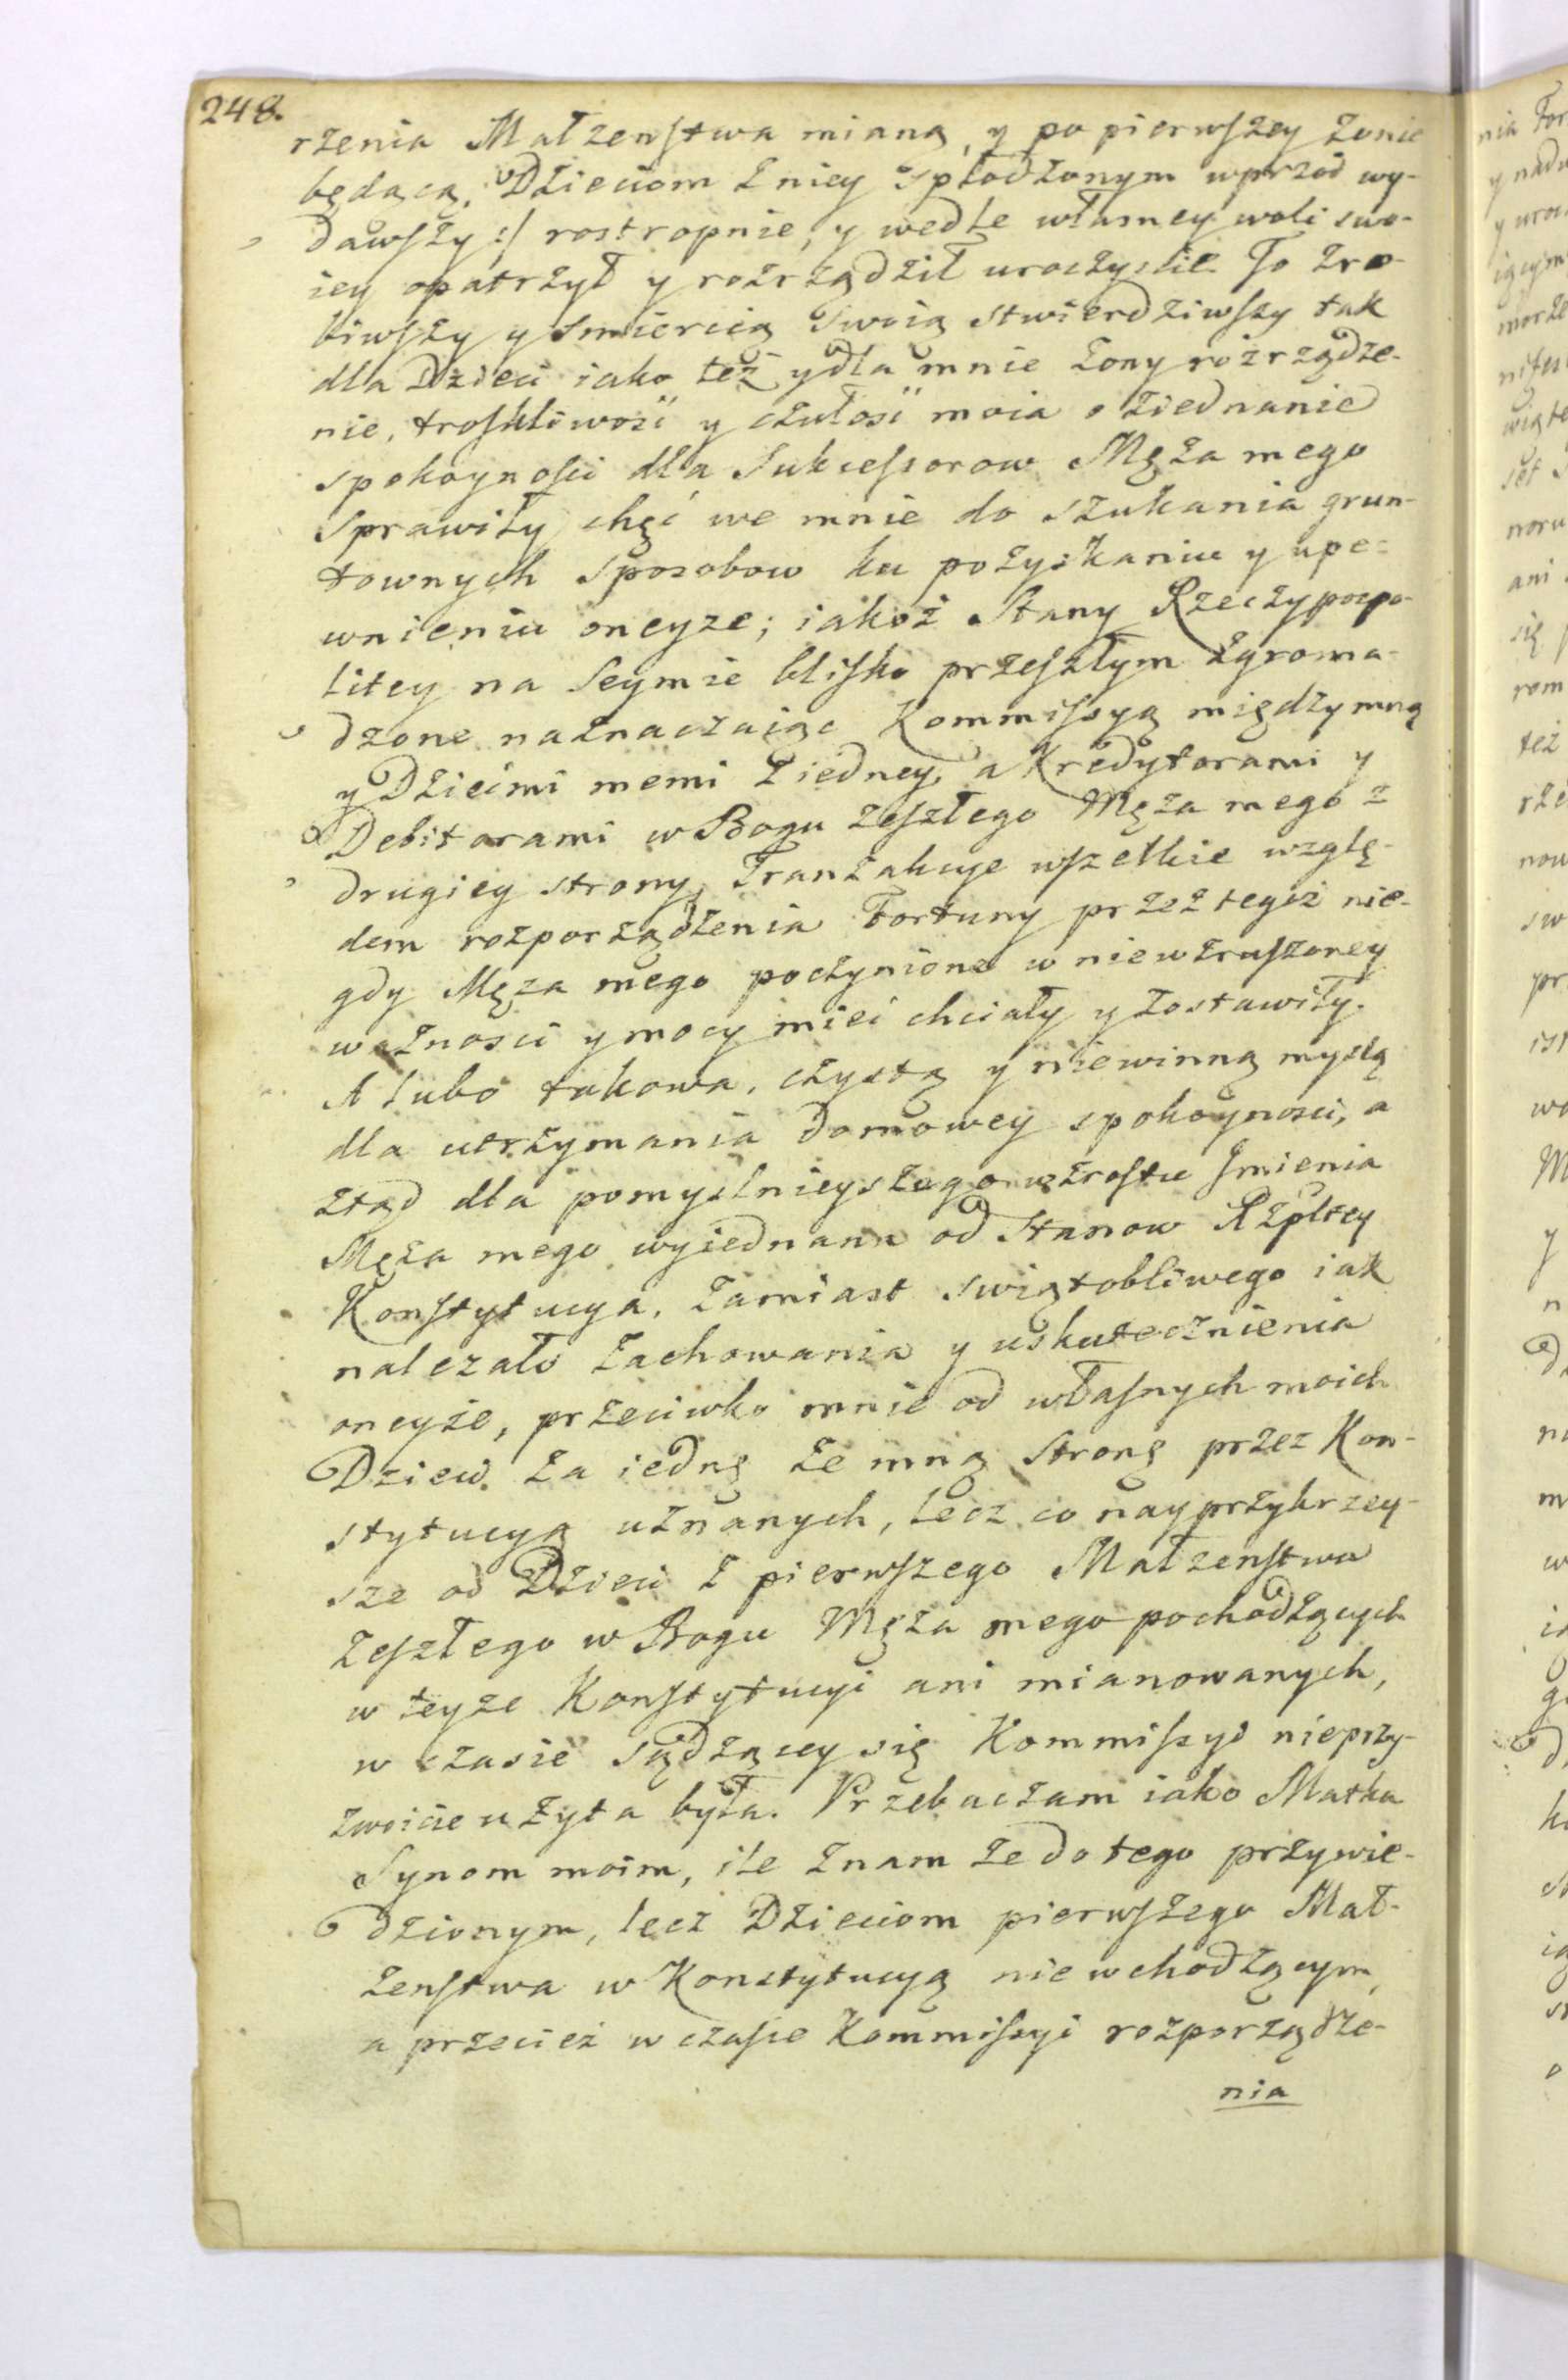 248.
rzenia Małzenstwa mianą, y po pierwszey zonie
będącą, Dzieciom z niey spłodzonym wprzód wy-
dawszy :/ rostropnie, y wedle własney woli swo-
iey opatrzył y rozrządził uroczyscie. To zro-
biwszy y smiercią swoią stwierdziwszy tak
dla Dzieci iako też y dla mnie zony rozrządze-
nie, troskliwość y czułość moia o ziednanie
spokoyności dla Sukcessorow Męża mego
sprawiły chęć we mnie do szukania grun-
townych sposobow ku pozyskaniu y upe=
wnieniu oneyze; iakoż Stany Rzeczypospo-
litey na Seymie blisko przeszłym zgroma-
dzone naznaczaiąc Kommissyą między mną
y Dziećmi memi z iedney, a Kredytorami y
Debitorami w Bogu zeszłego Męza mego z
drugiey strony, Tranzakcye wszelkie wzglę-
dem rozporządzenia Fortuny przez tegoż nie-
gdy Męza mego poczynione w niewzruszoney
ważnosci y mocy mieć chciały y zostawiły.
A lubo takowa, czystą y niewinną myslą
dla utrzymania domowey spokoynosci, a
ztąd dla pomyslnieyszego wzrostu Jmienia
Męża mego wyiednana od Stanow Rzpltey
Konstytucya, zamiast swiątobliwego iak
nalezało zachowania y uskutecznienia
oneyże, przeciwko mnie od własnych moich
Dzieci za iednę ze mną stronę przez Kon-
stytucyą uznanych, lecz co nayprzykrzey-
sze od Dzieci z pierwszego Małzenstwa
zeszłego w Bogu Męża mego pochodzących
w teyze Konstytucyi ani mianowanych,
w czasie sądzącey się Kommissyi nieprzy-
zwoicie użyta była. Przebaczam iako Matka
Synom moim, ile znam że do tego przywie-
dzionym, lecz Dzieciom pierwszego Mał-
żenstwa w Konstytucyą nie wchodzącym,
a przecież w czasie Kommissyi rozporządze-
nia